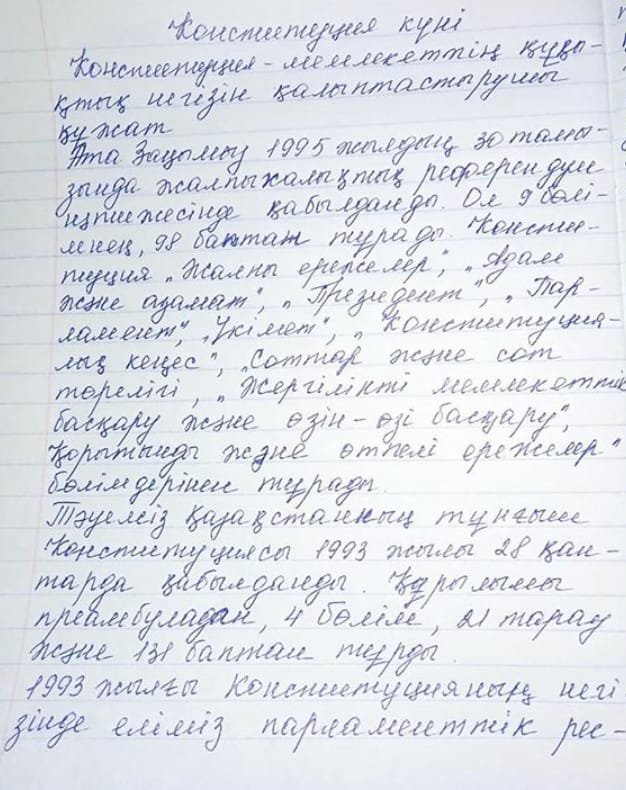 Конституция күні
Конституция - мемлекеттің құқы-
қтық негізін қалыптастырушы
құжат
Ата Заңымыз 1995 жылдың 30 тамы-
зында жалпыхалықтық референдум
нәтижесінде қабылданды. Ол 9 бөлі-
мнен, 98 баптан тұрады. Консти-
туция „Жалпы ережелер", „Адам
және азамат", „Президент", „Пар-
ламент", „Үкімет", „Конституция-
лық кеңес", „Соттар және сот
төрелігі, „Жергілікті мемлекеттік
басқару және өзін-өзі басқару",
Қорытынды және өтпелі ережелер"
бөлімдерінен тұрады.
Тәуелсіз Қазақстанның тұңғыш
Конституциясы 1993 жылы 28 қаң-
тарда қабылданды. Құрылымы
преамбуладан, 4 бөлім, 21 тарау
және 131 баптан тұрды.
1993 жылғы Конституцияның негі
зінде еліміз парламенттік рес-